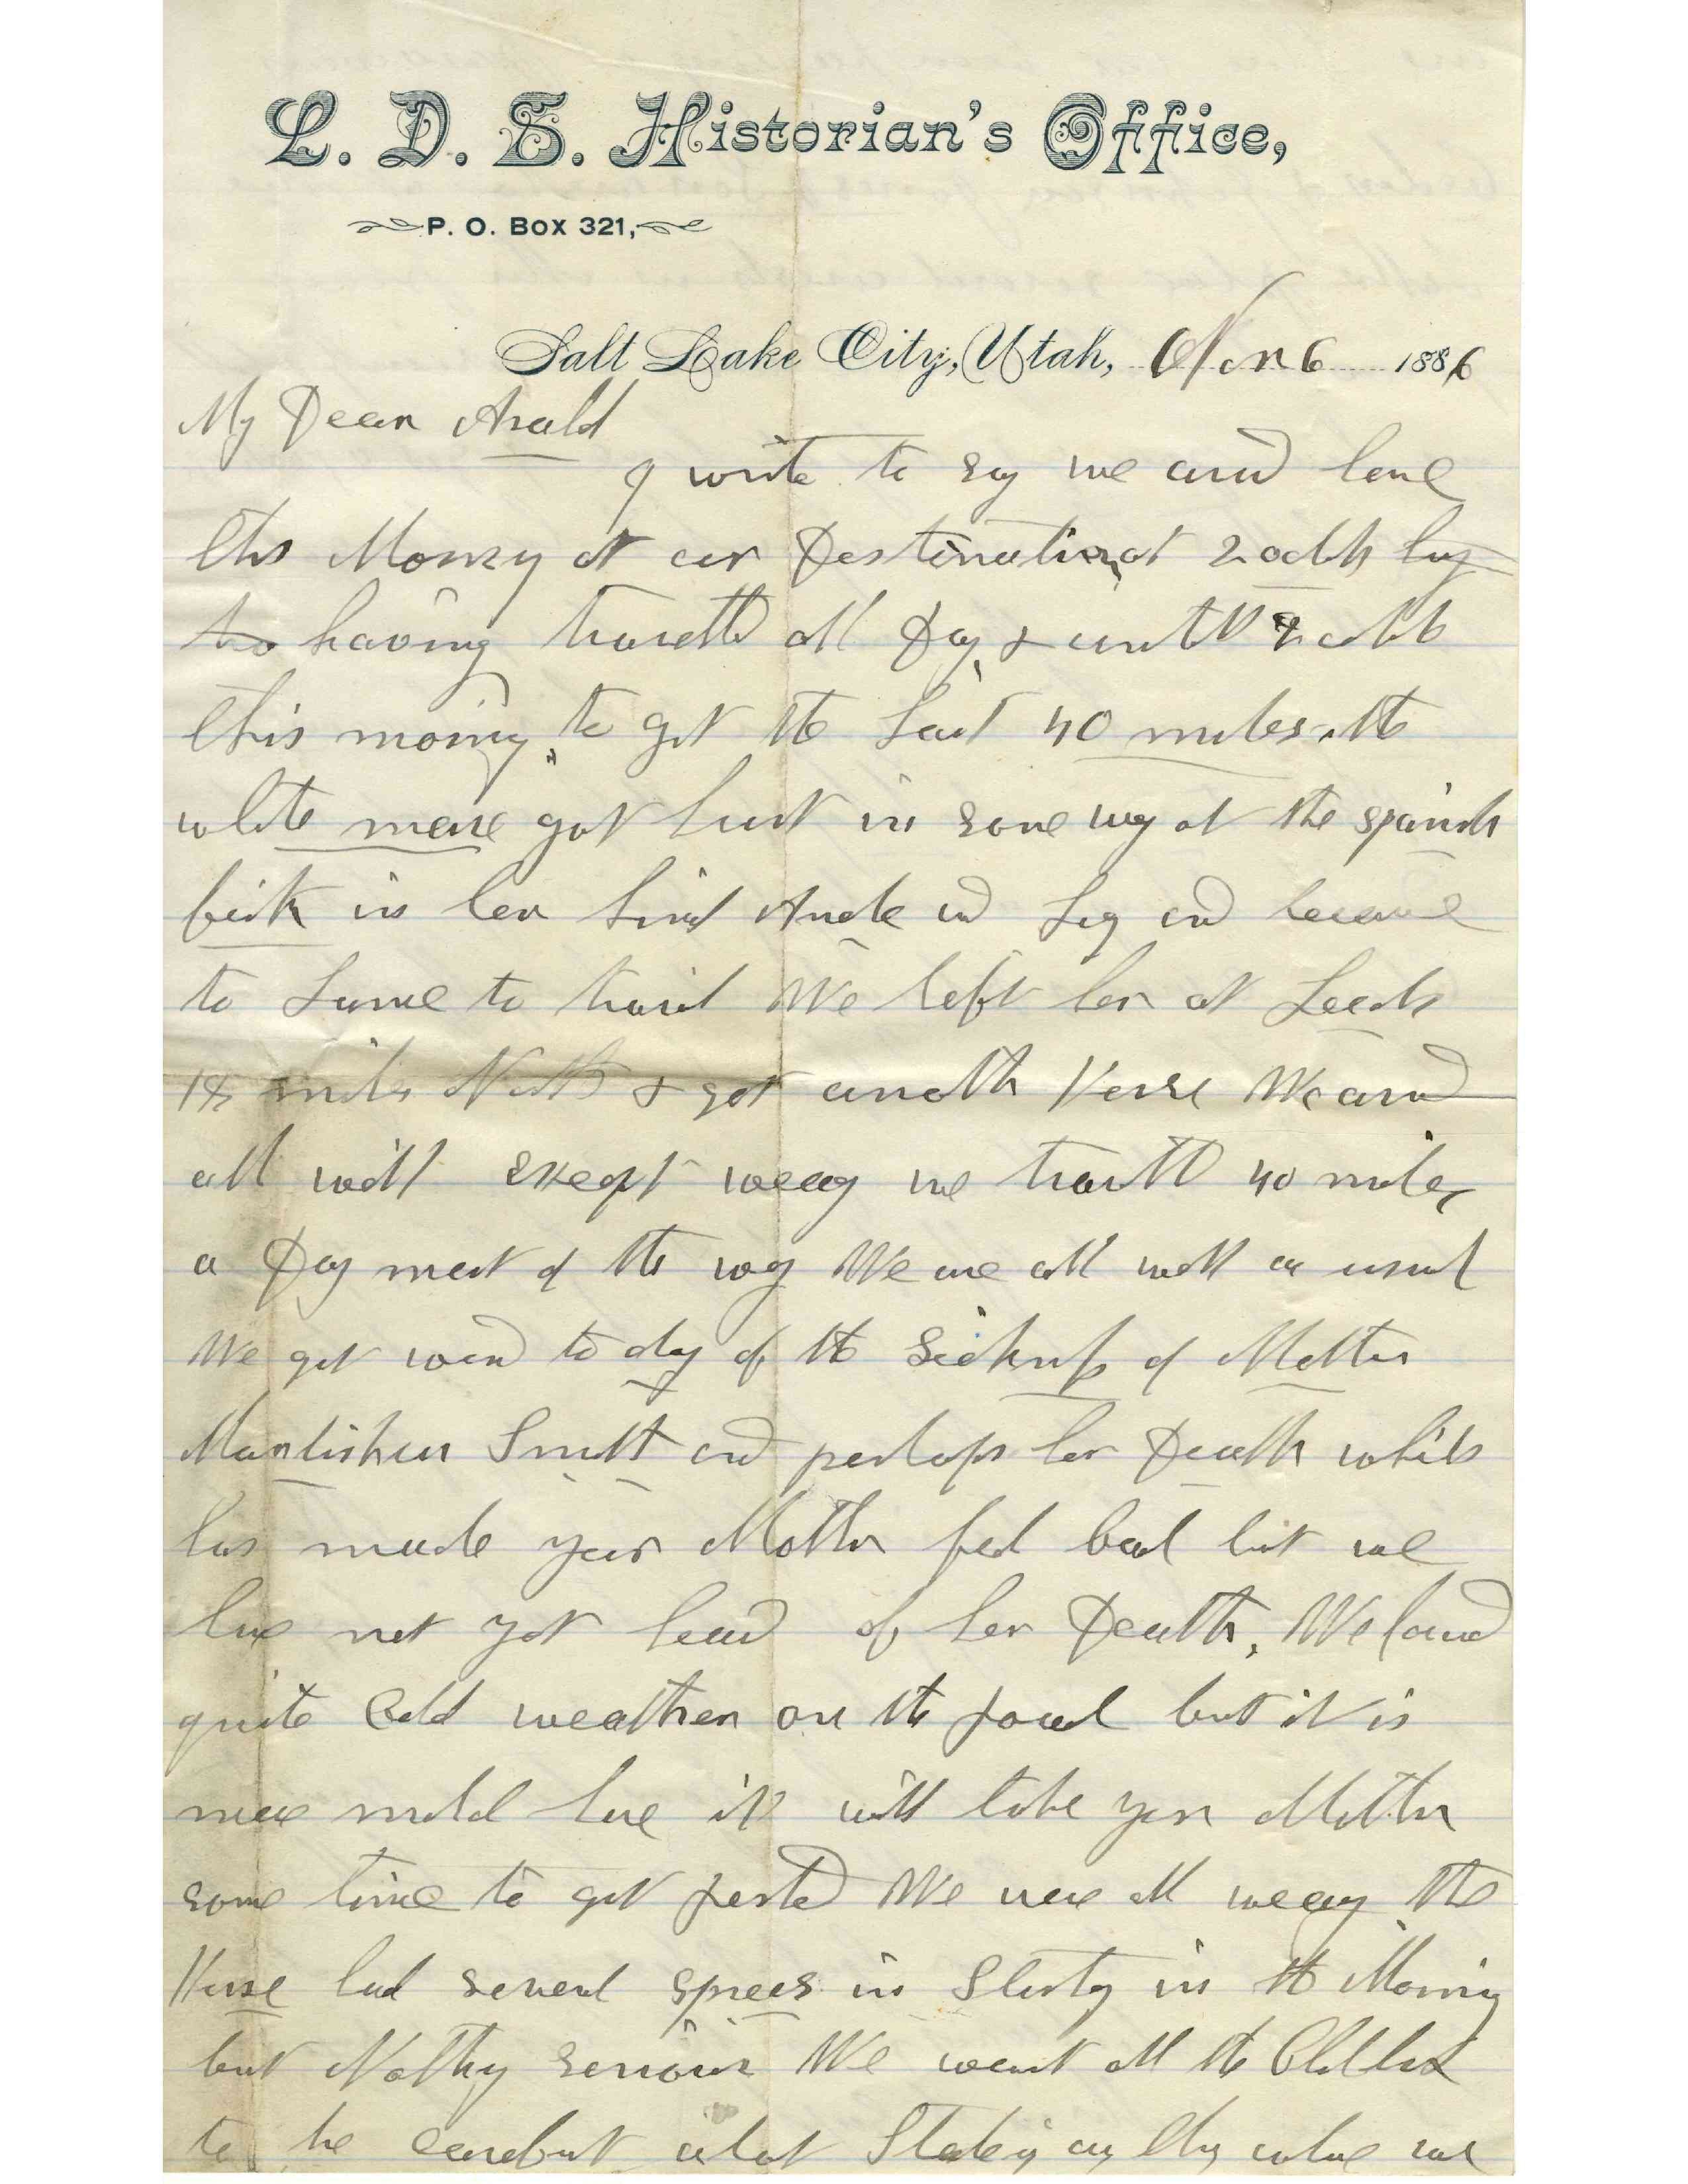 L. D. S. Historian's Office,
P. O. Box 321,
Salt Lake City, Utah, Nov 6 1886
My Dear Asahl
I write to say we arivd here
this Morning at our Destination at 2 oclk
having travelld all Day, & untill 2 oclok
this morning to get the Last 40 miles. the
white mare got hurt in some way at the spanish
fork in her hind Ancle and Leg and became
to Lame to travel We left her at Leeds
18 miles North & got anoth Horse We arivd
all well except weary we travlld 40 miles
a Day most of the way We are all well as usual
We got word to day of the Sickness of Mother
Smith and perhaps her Death which
has made your Mother feel bad but we
have not yet heard of her Death, We found
quite Cold weather on the Road but it is
more mild here it will take your Mother
some time to get Rested We were all weary the
Horse had several sprees in Starting in the Morning
but Nothing serious We want all the Children
to be careful about Stating any thing whare we